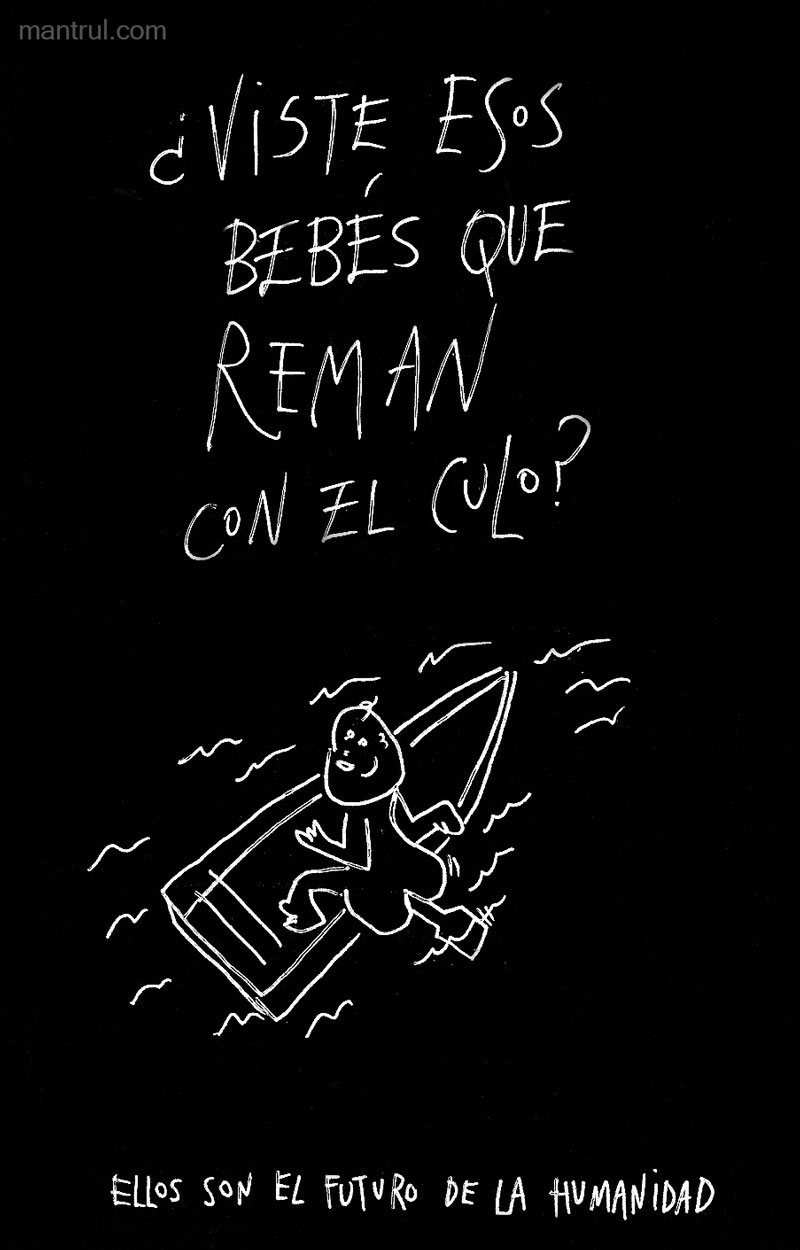 mantrul.com
¿VISTE ESOS
BEBÉS QUE
REMAN
CON EL CULO?
ELLOS SON EL FUTURO DE LA HUMANIDAD